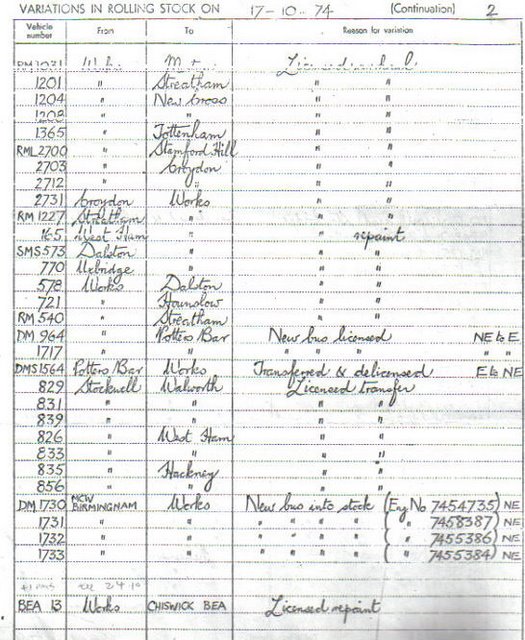 VARIATIONS IN ROLLING STOCK ON 17-10-74 (Continuation) 2
Vehicle number From To Reason for variation
RM 1031 Works
1201 " Streatham " "
1204 " New Cross " "
1208 " " " "
1365 " Tottenham " "
RML 2700 " Stamford Hill " "
2703 " Croydon " "
2712 " " " "
2731 Croydon Works " "
RM 1227 Streatham " " "
165 West Ham " " repaint
SMS 573 Dalston " " "
770 Uxbridge " " "
578 Works Dalston " "
721 " Hounslow " "
RM 540 " Streatham " "
DM 964 " Potters Bar New bus licensed NE to E
1717 " " " " " " "
DMS 1564 Potters Bar Works Transferred & delicensed E to NE
829 Stockwell Walworth Licensed transfer
831 " " " "
839 " " " "
826 " West Ham " "
833 " " " "
835 " Hackney " "
856 " " " "
DM 1730 MCW BIRMINGHAM Works New bus into stock (Eng No 7454735) NE
1731 " " " " " " ( " 7458387) NE
1732 " " " " " " ( " 7455386) NE
1733 " " " " " " ( " 7455384) NE
BEA 13 Works CHISWICK BEA Licensed repaint